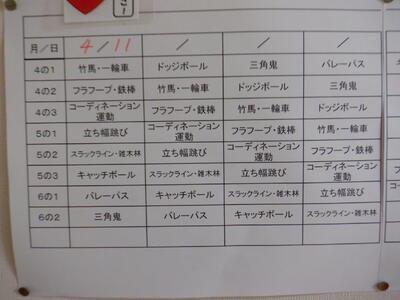 さ!
月/日 4/11 / / /
4の1 竹馬・一輪車 ドッジボール 三角鬼 バレーパス
4の2 フラフープ・鉄棒 竹馬・一輪車 ドッジボール 三角鬼
4の3 コーディネーション運動 フラフープ・鉄棒 竹馬・一輪車 ドッジボール
5の1 立ち幅跳び コーディネーション運動 フラフープ・鉄棒 竹馬・一輪車
5の2 スラックライン・雑木林 立ち幅跳び コーディネーション運動 フラフープ・鉄棒
5の3 キャッチボール スラックライン・雑木林 立ち幅跳び コーディネーション運動
6の1 バレーパス キャッチボール スラックライン・雑木林 立ち幅跳び
6の2 三角鬼 バレーパス キャッチボール スラックライン・雑木林